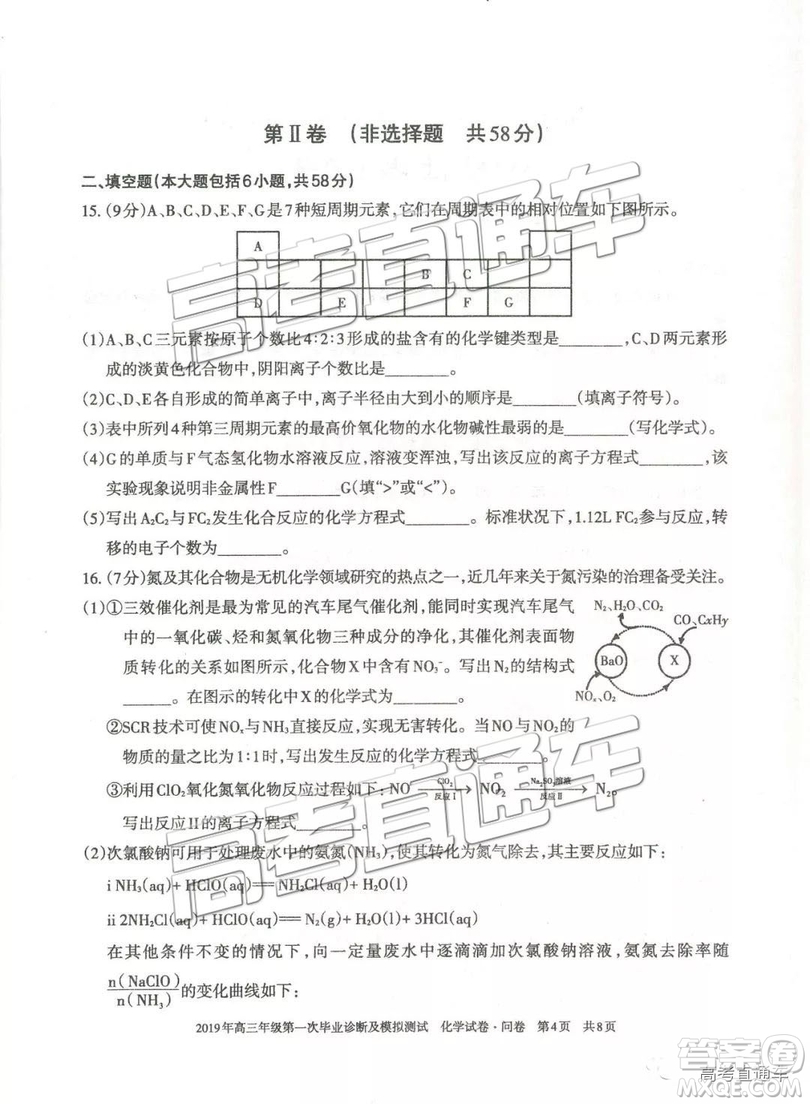 第Ⅱ卷 (非选择题 共58分)
二、填空题(本大题包括6小题,共58分)
15.(9分)A、B、C、D、E、F、G是7种短周期元素,它们在周期表中的相对位置如下图所示。
A
B C
D E F G
(1)A、B、C三元素按原子个数比4:2:3形成的盐含有的化学键类型是________,C、D两元素形
成的淡黄色化合物中,阴阳离子个数比是________。
(2)C、D、E各自形成的简单离子中,离子半径由大到小的顺序是________(填离子符号)。
(3)表中所列4种第三周期元素的最高价氧化物的水化物碱性最弱的是________(写化学式)。
(4)G的单质与F气态氢化物水溶液反应,溶液变浑浊,写出该反应的离子方程式________,该
实验现象说明非金属性F________G(填“>”或“<”)。
(5)写出A₂C₂与FC₂发生化合反应的化学方程式________。标准状况下,1.12L FC₂参与反应,转
移的电子个数为________。
16.(7分)氮及其化合物是无机化学领域研究的热点之一,近几年来关于氮污染的治理备受关注。
(1)①三效催化剂是最为常见的汽车尾气催化剂,能同时实现汽车尾气
中的一氧化碳、烃和氮氧化物三种成分的净化,其催化剂表面物
质转化的关系如图所示,化合物X中含有NO₃⁻。写出N₂的结构式
________。在图示的转化中X的化学式为________。
N₂、H₂O、CO₂
CO、CxHy
BaO X
NOₓ、O₂
②SCR技术可使NOₓ与NH₃直接反应,实现无害转化。当NO与NO₂的
物质的量之比为1:1时,写出反应的化学方程式________。
③利用ClO₂氧化氮氧化物反应过程如下:NO ClO₂ 反应Ⅰ NO₂ Na₂SO₃溶液 反应Ⅱ N₂。
写出反应II的离子方程式________。
(2)次氯酸钠可用于处理废水中的氨氮(NH₃),使其转化为氮气除去,其主要反应如下:
i NH₃(aq)+ HClO(aq)══ NH₂Cl(aq)+ H₂O(l)
ii 2NH₂Cl(aq)+ HClO(aq)══ N₂(g)+ H₂O(l)+ 3HCl(aq)
在其他条件不变的情况下,向一定量废水中逐滴滴加次氯酸钠溶液,氨氮去除率随
n(NaClO)/n(NH₃)的变化曲线如下:
2019年高三年级第一次毕业诊断及模拟测试 化学试卷·问卷 第4页 共8页
高考直通车
高考直通车
高考直通车
答案圈
高考直通车
MXQE.COM